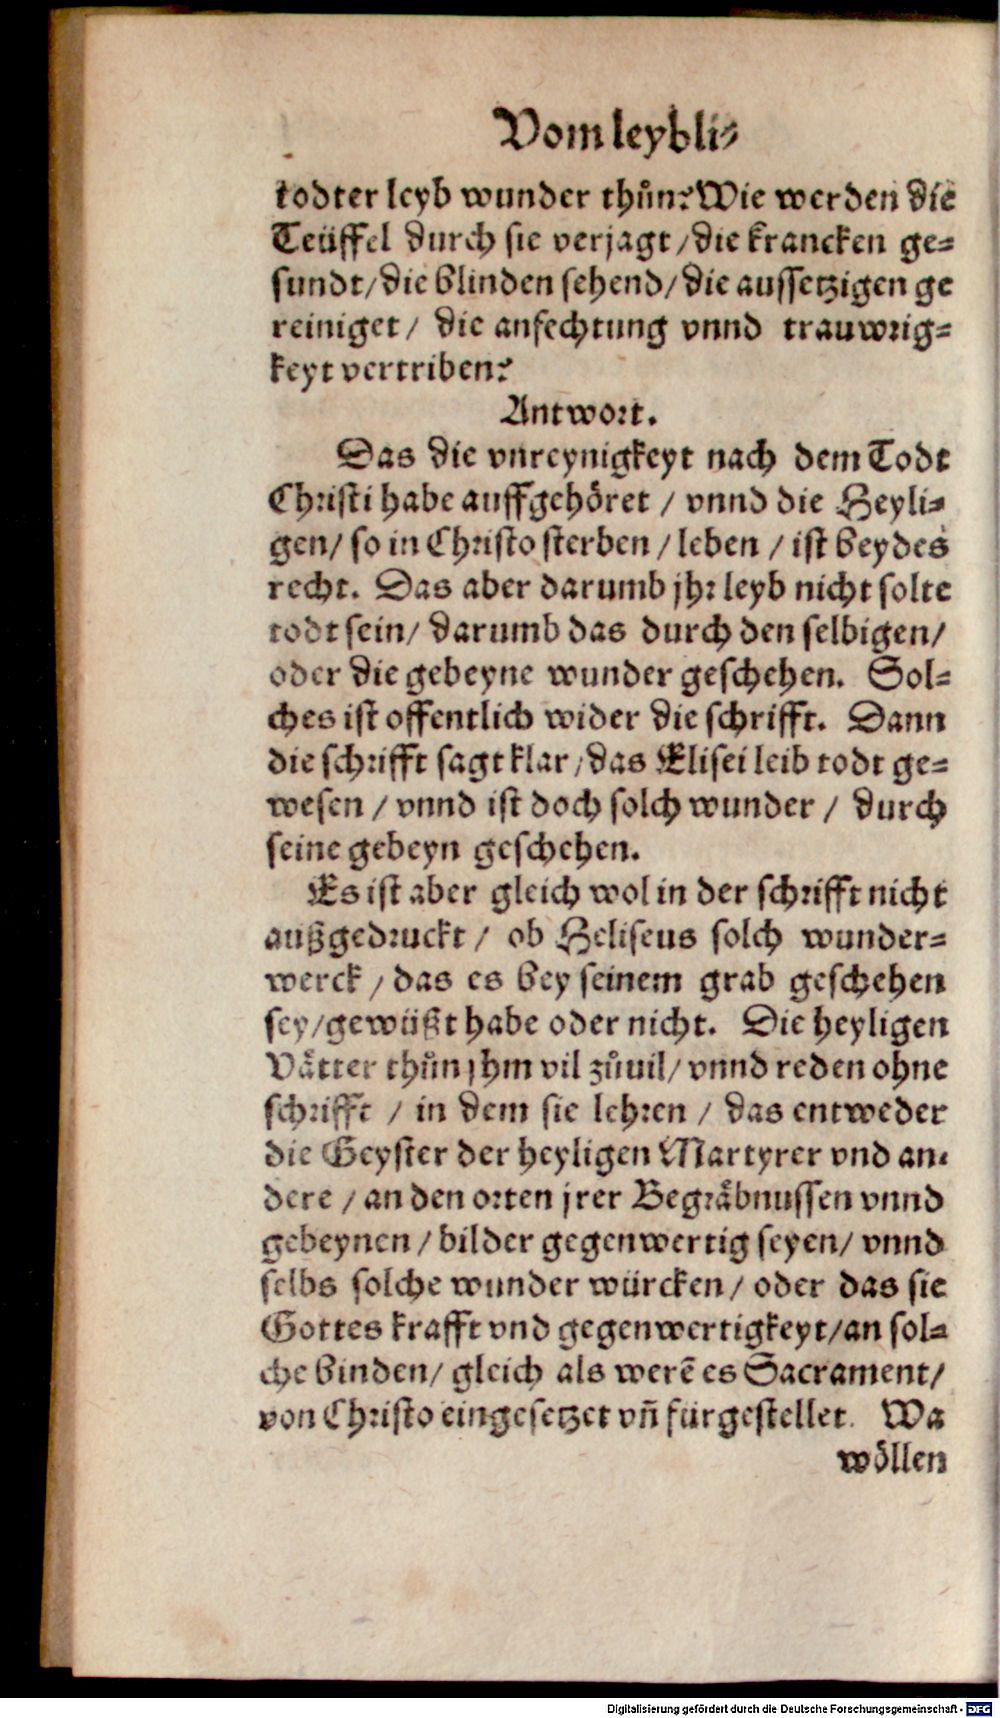 Vom leybli⸗
todter leyb wunder thůn? Wie werden die
Teüffel durch sie verjagt / die krancken ge⸗
sundt / die blinden sehend / die aussetzigen ge
reiniget / die anfechtung vnnd trauwrig⸗
keyt vertriben?
Antwort.
Das die vnreynigkeyt nach dem Todt
Christi habe auffgehöret / vnnd die Heyli⸗
gen / so in Christo sterben / leben / ist beydes
recht. Das aber darumb jhr leyb nicht solte
todt sein / darumb das durch den selbigen /
oder die gebeyne wunder geschehen. Sol⸗
ches ist offentlich wider die schrifft. Dann
die schrifft sagt klar / das Elisei leib todt ge⸗
wesen / vnnd ist doch solch wunder / durch
seine gebeyn geschehen.
Es ist aber gleich wol in der schrifft nicht
außgedruckt / ob Heliseus solch wunder⸗
werck / das es bey seinem grab geschehen
sey / gewüßt habe oder nicht. Die heyligen
Vätter thůn jhm vil zůuil / vnnd reden ohne
schrifft / in dem sie lehren / das entweder
die Geyster der heyligen Martyrer vnd an⸗
dere / an den orten jrer Begräbnussen vnnd
gebeynen / bilder gegenwertig seyen / vnnd
selbs solche wunder würcken / oder das sie
Gottes krafft vnd gegenwertigkeyt / an sol⸗
che binden / gleich als werē es Sacrament /
von Christo eingesetzet vñ fürgestellet. Wa
wöllen
Digitalisierung gefördert durch die Deutsche Forschungsgemeinschaft - DFG